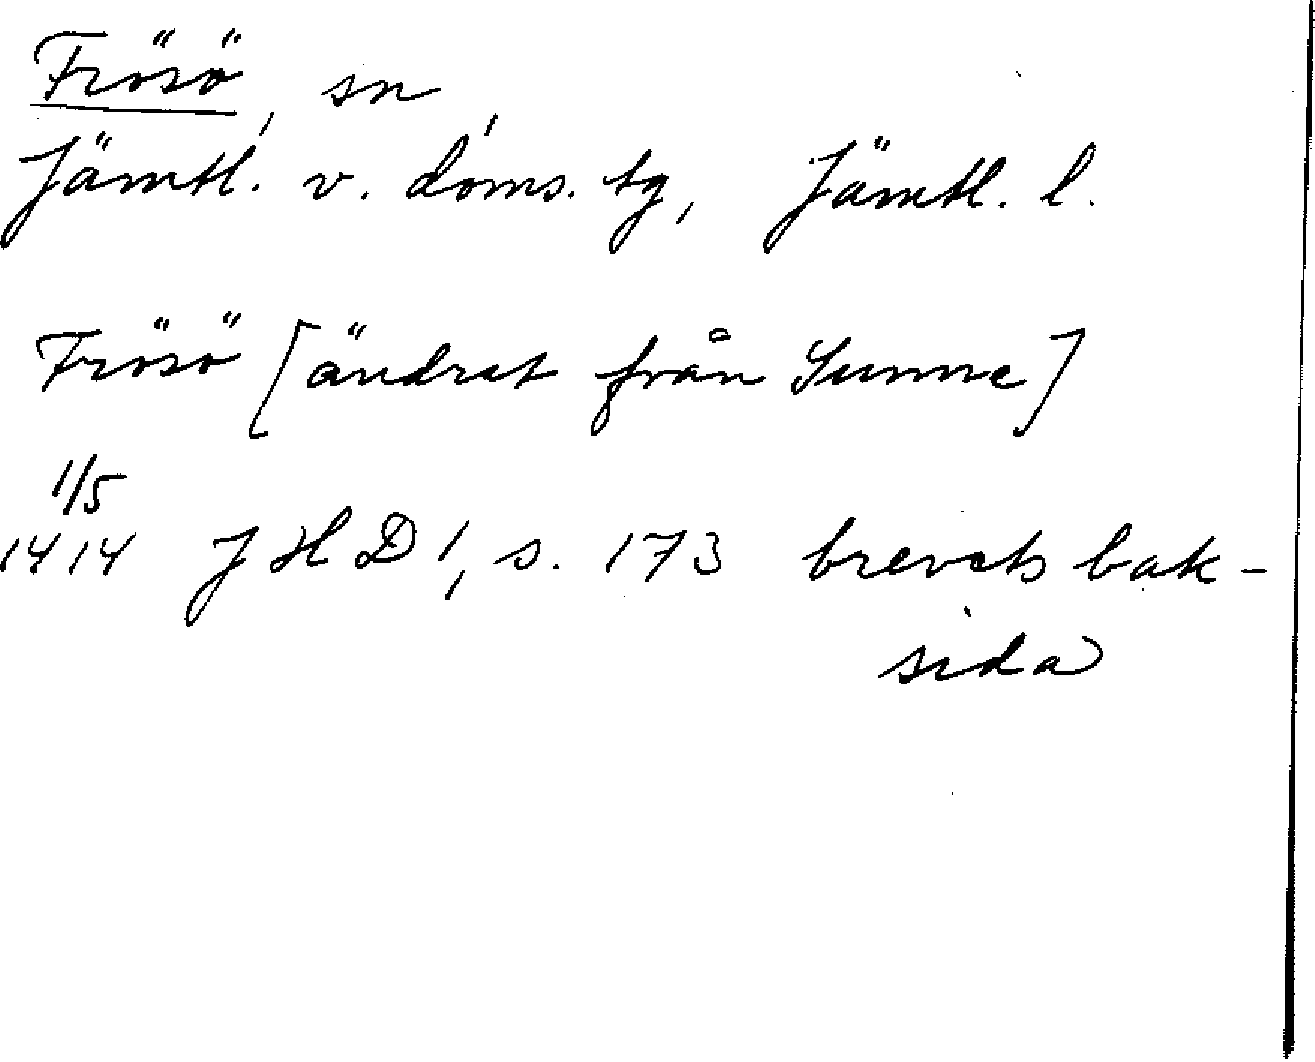 Frösö, sn,
Jämtl. v. doms. tg, Jämtl. l.
Frösö [ändrat från Sunne]
1/5
1414 JHD 1, s. 173 brevets bak-
sida